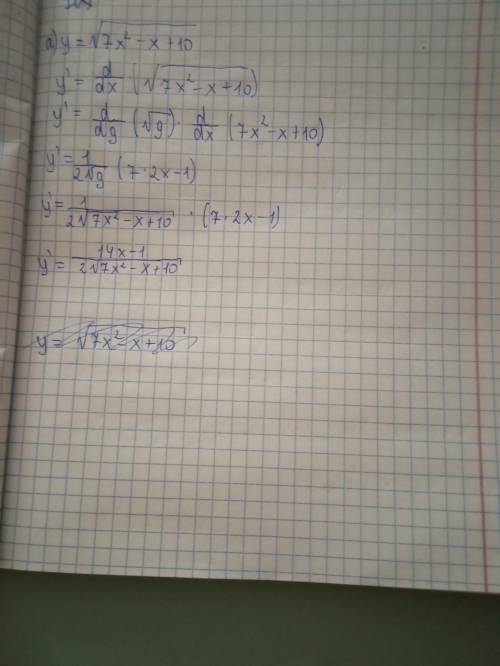 а) y = √7x² - x + 10
y' = d/dx (√7x² - x + 10)
y' = d/dg (√g) · d/dx (7x² - x + 10)
y' = 1/2√g (7·2x - 1)
y' = 1/2√7x² - x + 10 · (7·2x - 1)
y' = 14x - 1/2√7x² - x + 10
y = √7x² - x + 10